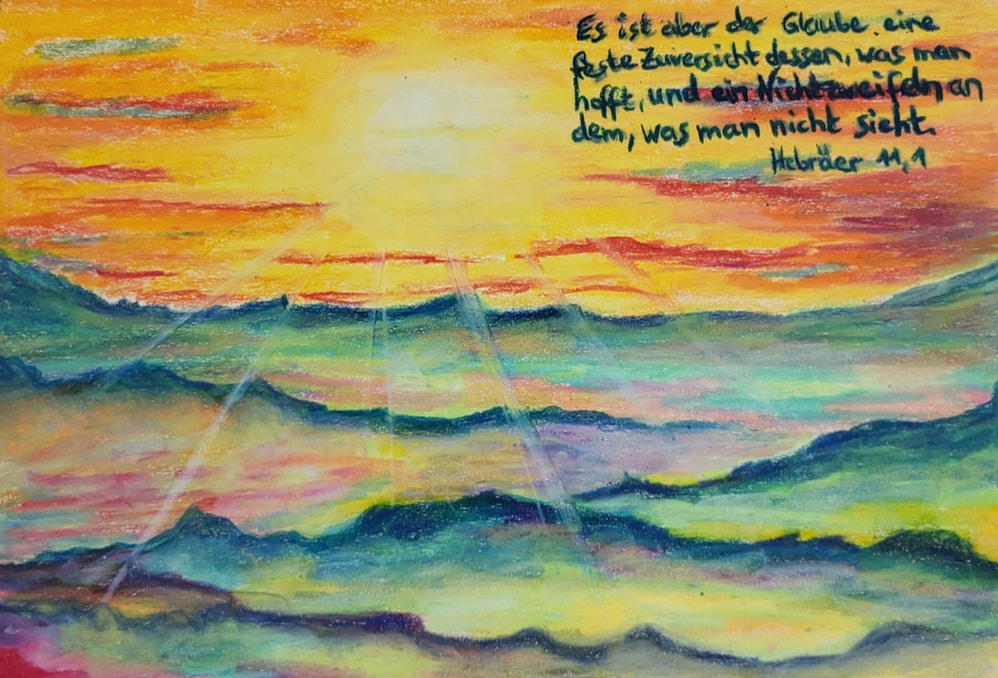 Es ist aber der Glaube eine
feste Zuversicht dessen, was man
hofft, und ein Nichtzweifeln an
dem, was man nicht sieht.
Hebräer 11,1